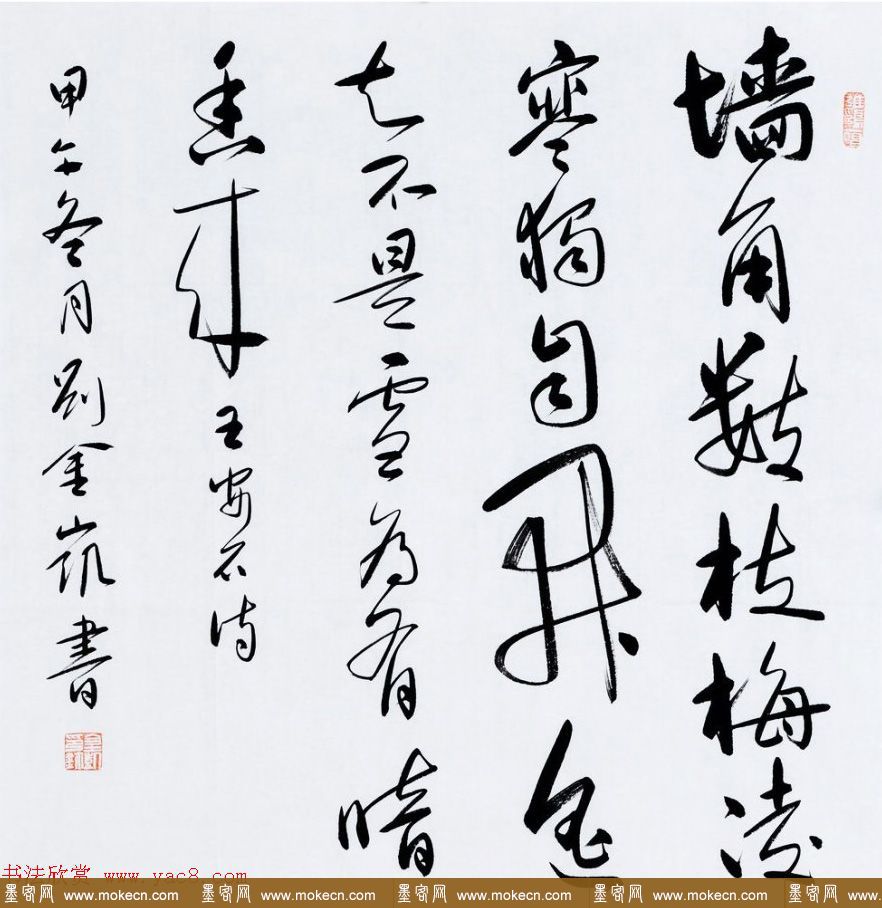 墙角数枝梅凌
寒独自开遥
知不是雪为有暗
香来 王安石诗
甲午冬月刘金凯书
书法欣赏 www.yac8.com
墨客网 www.mokecn.com 墨客网 www.mokecn.com 墨客网 www.mokecn.com 墨客网 www.mokecn.com